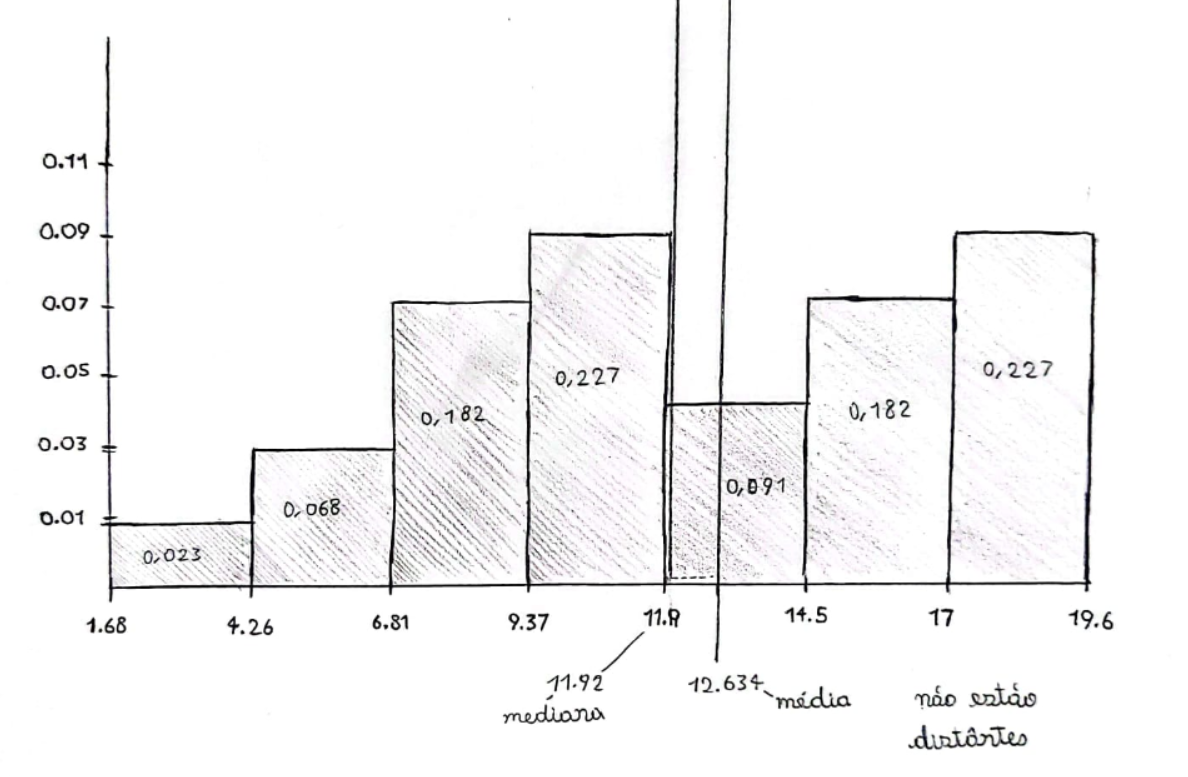 0.11
0.09
0.07
0.05
0.03
0.01
0,023
0,068
0,182
0,227
0,091
0,182
0,227
1.68
4.26
6.81
9.37
11.9
14.5
17
19.6
11.92
mediana
12.634
média
não estão
distântes